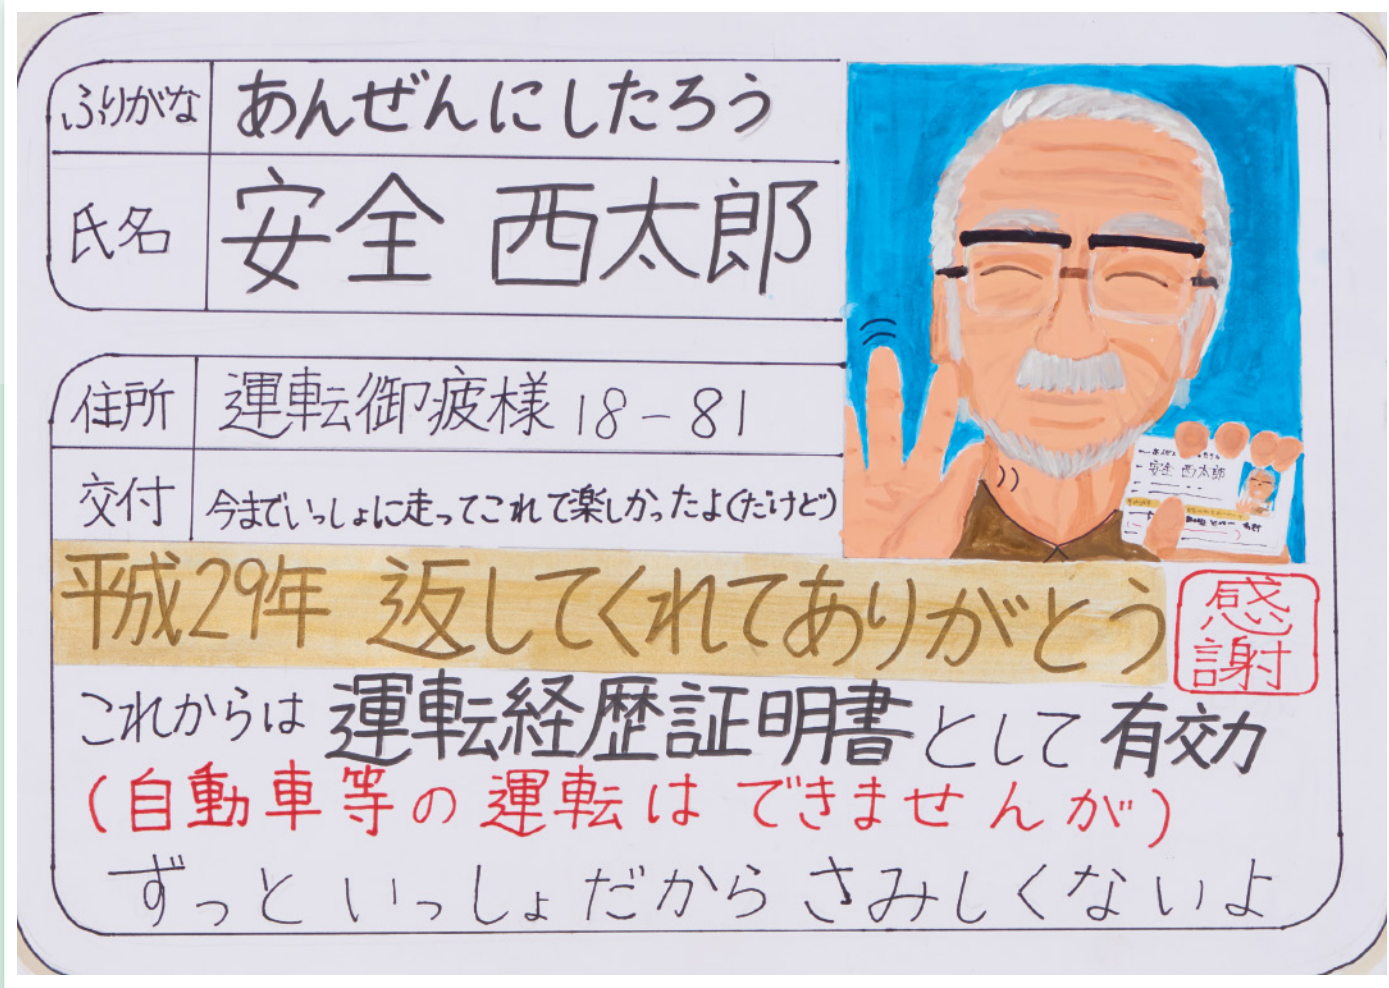 ふりがな あんぜんにしたろう
氏名 安全 西太郎
住所 運転御疲様 18-81
交付 今までいっしょに走ってこれて楽しかったよ(だけど)
平成29年 返してくれてありがとう
感謝
これからは 運転経歴証明書 として 有効
(自動車等の運転はできませんが)
ずっといっしょだからさみしくないよ
安全 西太郎